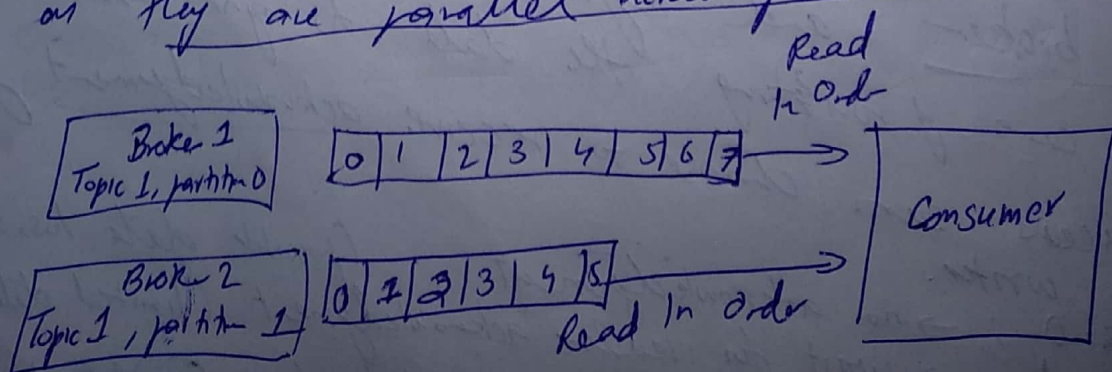 as they are parallel
Read
In Order
Broker 1
Topic 1, partition 0
0 1 2 3 4 5 6 7
Consumer
Broker 2
Topic 1, partition 1
0 1 2 3 4 5
Read In Order